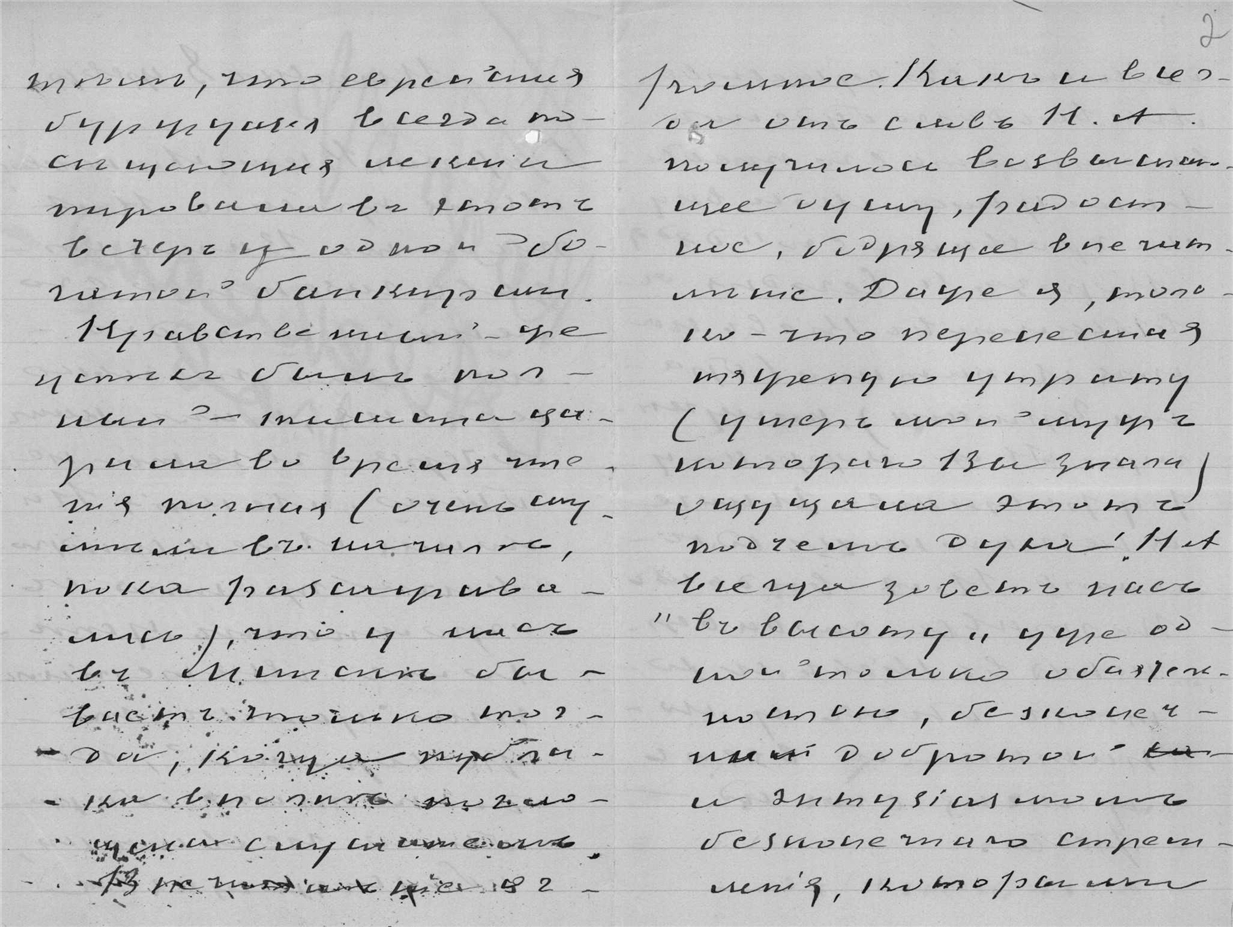 2
тъмъ, что еврейская
буржуазія всегда по-
сѣщающая лекціи
пировала въ этотъ
вечеръ у одной бо-
гатой банкирши.
Нравственный же
успѣхъ былъ пол-
ный — тишина ца-
рила во время чте-
нія полная (очень шу-
мѣли въ началѣ,
пока разсажива-
лись), что у насъ
въ Минскѣ бы-
ваетъ только тог-
да, когда публи-
ка вполнѣ погло-
щена слушаніемъ.
Впечатлѣніе ог-
ромное. Какъ и всег-
да отъ словъ Н. А.
получилось возвышаю-
щее душу, радост-
ное, бодрящее впечат-
лѣніе. Даже я, толь-
ко-что перенесшая
тяжелую утрату
(умеръ мой мужъ
котораго Вы знали)
ощущала этотъ
подъемъ духа! Н А
всегда зоветъ насъ
"въ высоту" уже од-
ной только
безконеч-
ной добротой
и энтузіазмомъ
безконечнаго стрем-
ленія, которыми